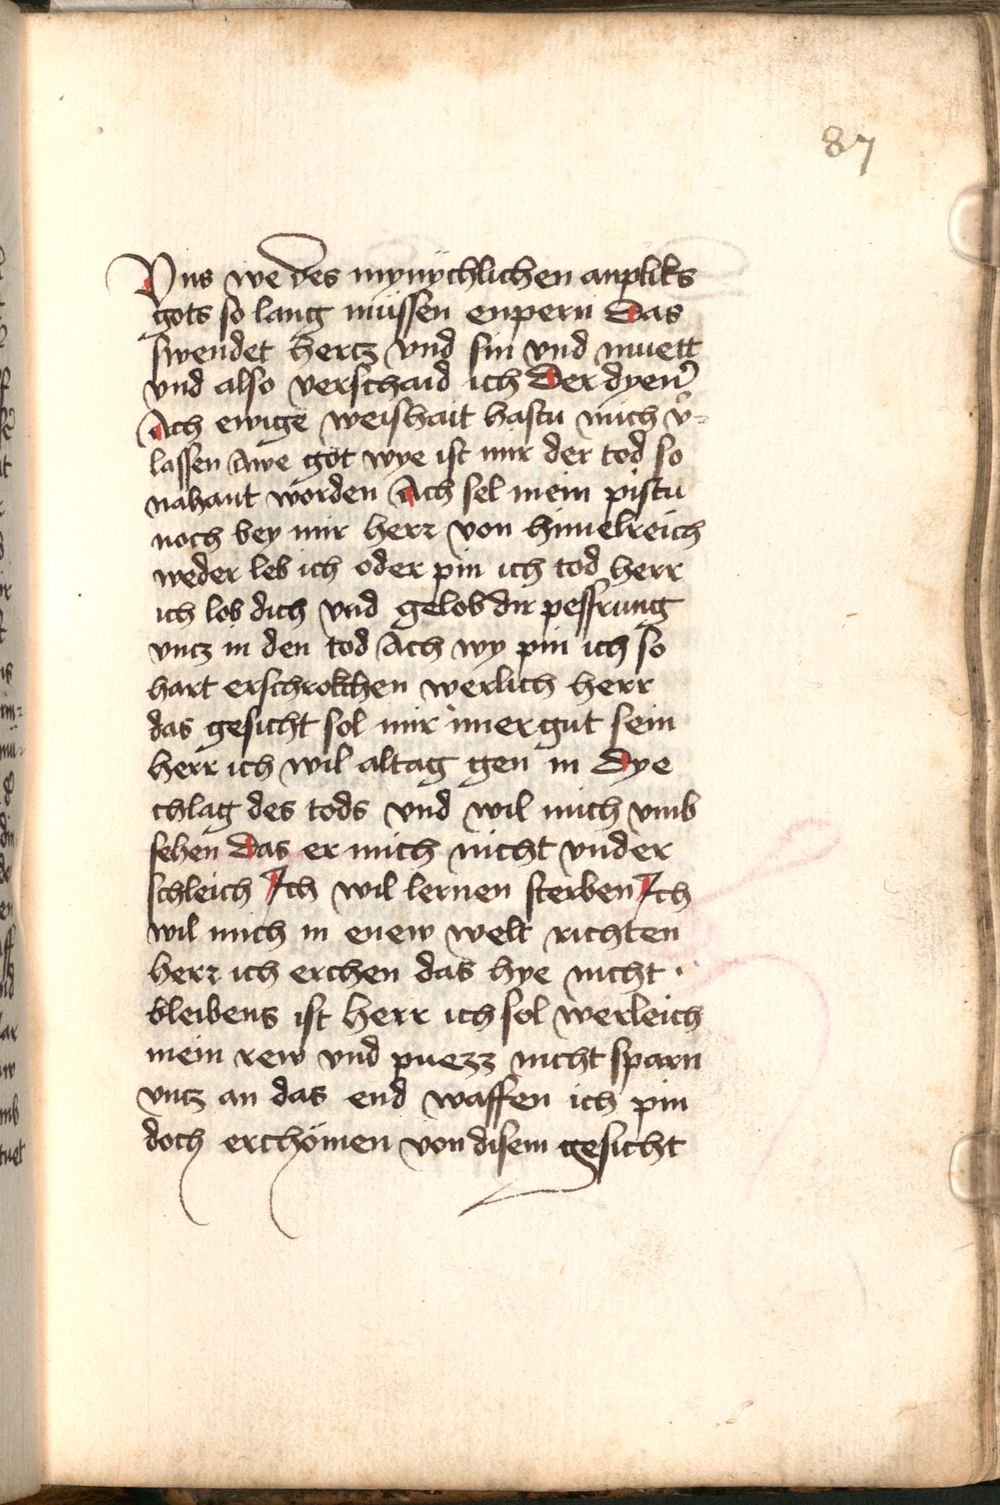 87
Vns we des mynychlichen anpliks
gots so lang müssen enpern Das
swendet hercz vnd sin vnd muett
vnd also verschaid ich Der dyen̉
Ach ewige weishait hastu mich v̉=
lassen Awe got wye ist mir der tod so
nahant worden Ach sel mein pistu
noch bey mir herr von himelreich
weder leb ich oder pin ich tod herr
ich lob dich vnd gelob dir pessrung
vncz in den tod Ach wy pin ich so
hart erschrokchen werlich herr
das gesicht sol mir imer gut sein
herr ich wil altag gen in Dye
chlag des tods vnd wil mich vmb
sehen Das er mich nicht vnder
schleich Ich wil lernen sterben Ich
wil mich in enew welt richten
herr ich erchen das hye nicht
bleibens ist herr ich sol werleich
mein rew vnd puezz nicht sparn
vncz an das end waffen ich pin
doch erchömen von disem gesicht